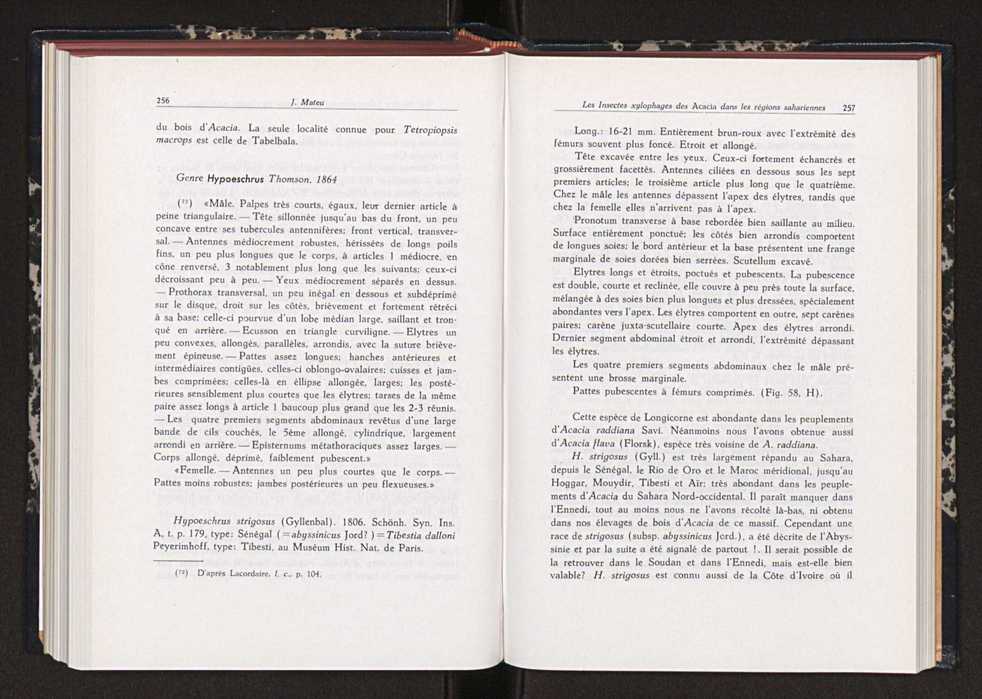 256
J. Mateu
du bois d'Acacia. La seule localité connue pour Tetropiopsis
macrops est celle de Tabelbala.
Genre Hypoeschrus Thomson, 1864
(⁷²) «Mâle. Palpes très courts, égaux, leur dernier article à
peine triangulaire. — Tête sillonnée jusqu'au bas du front, un peu
concave entre ses tubercules antennifères; front vertical, transver-
sal. — Antennes médiocrement robustes, hérissées de longs poils
fins, un peu plus longues que le corps, à articles 1 médiocre, en
cône renversé, 3 notablement plus long que les suivants; ceux-ci
décroissant peu à peu. — Yeux médiocrement séparés en dessus.
— Prothorax transversal, un peu inégal en dessous et subdéprimé
sur le disque, droit sur les côtés, brièvement et fortement rétréci
à sa base; celle-ci pourvue d'un lobe médian large, saillant et tron-
qué en arrière. — Ecusson en triangle curviligne. — Elytres un
peu convexes, allongés, parallèles, arrondis, avec la suture briève-
ment épineuse. — Pattes assez longues; hanches antérieures et
intermédiaires contigües, celles-ci oblongo-ovalaires; cuisses et jam-
bes comprimées; celles-là en éllipse allongée, larges; les posté-
rieures sensiblement plus courtes que les élytres; tarses de la même
paire assez longs à article 1 baucoup plus grand que les 2-3 réunis.
— Les quatre premiers segments abdominaux revêtus d'une large
bande de cils couchés, le 5ème allongé, cylindrique, largement
arrondi en arrière. — Episternums métathoraciques assez larges. —
Corps allongé, déprimé, faiblement pubescent.»
«Femelle. — Antennes un peu plus courtes que le corps. —
Pattes moins robustes; jambes postérieures un peu flexueuses.»
Hypoeschrus strigosus (Gyllenbal). 1806. Schönh. Syn. Ins.
A, t. p. 179, type: Sénégal (=abyssinicus Jord? ) = Tibestia dalloni
Peyerimhoff, type: Tibesti, au Muséum Hist. Nat. de Paris.
(⁷²) D'après Lacordaire, l. c., p. 104.
Les Insectes xylophages des Acacia dans les régions sahariennes 257
Long.: 16-21 mm. Entièrement brun-roux avec l'extrémité des
fémurs souvent plus foncé. Etroit et allongé.
Tête excavée entre les yeux. Ceux-ci fortement échancrés et
grossièrement facettés. Antennes ciliées en dessous sous les sept
premiers articles; le troisième article plus long que le quatrième.
Chez le mâle les antennes dépassent l'apex des élytres, tandis que
chez la femelle elles n'arrivent pas à l'apex.
Pronotum transverse à base rebordée bien saillante au milieu.
Surface entièrement ponctué; les côtés bien arrondis comportent
de longues soies; le bord antérieur et la base présentent une frange
marginale de soies dorées bien serrées. Scutellum excavé.
Elytres longs et étroits, poctués et pubescents. La pubescence
est double, courte et reclinée, elle couvre à peu près toute la surface,
mélangée à des soies bien plus longues et plus dressées, spécialement
abondantes vers l'apex. Les élytres comportent en outre, sept carènes
paires; carène juxta-scutellaire courte. Apex des élytres arrondi.
Dernier segment abdominal étroit et arrondi, l'extrémité dépassant
les élytres.
Les quatre premiers segments abdominaux chez le mâle pré-
sentent une brosse marginale.
Pattes pubescentes à fémurs comprimés. (Fig. 58, H).
Cette espèce de Longicorne est abondante dans les peuplements
d'Acacia raddiana Savi. Néanmoins nous l'avons obtenue aussi
d'Acacia flava (Florsk), espèce très voisine de A. raddiana.
H. strigosus (Gyll.) est très largement répandu au Sahara,
depuis le Sénégal, le Rio de Oro et le Maroc méridional, jusqu'au
Hoggar, Mouydir, Tibesti et Aïr; très abondant dans les peuple-
ments d'Acacia du Sahara Nord-occidental. Il paraît manquer dans
l'Ennedi, tout au moins nous ne l'avons récolté là-bas, ni obtenu
dans nos élevages de bois d'Acacia de ce massif. Cependant une
race de strigosus (subsp. abyssinicus Jord.), a été décrite de l'Abys-
sinie et par la suite a été signalé de partout !. Il serait possible de
la retrouver dans le Soudan et dans l'Ennedi, mais est-elle bien
valable? H. strigosus est connu aussi de la Côte d'Ivoire où il